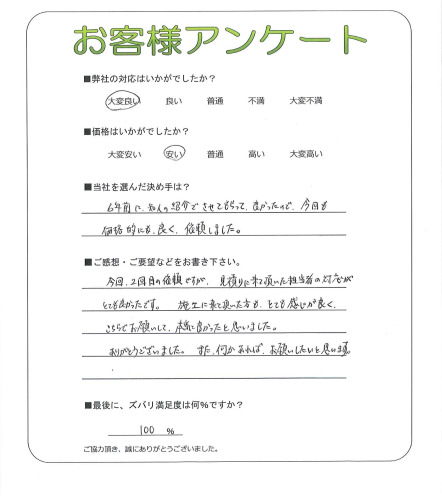 お客様アンケート
■弊社の対応はいかがでしたか？
大変良い 良い 普通 不満 大変不満
■価格はいかがでしたか？
大変安い 安い 普通 高い 大変高い
■当社を選んだ決め手は？
6年前に、知人の紹介でさせてもらって、良かったので、今回も
価格的にも、良く、依頼しました。
■ご感想・ご要望などをお書き下さい。
今回、2回目の依頼ですが、見積りに来て頂いた担当者の対応が
とても良かったです。 施工に来て頂いた方も、とても感じが良く、
こちらでお願いして、本当に良かったと思いました。
ありがとうございました。 また、何かあれば、お願いしたいと思います。
■最後に、ズバリ満足度は何％ですか？
100 ％
ご協力頂き、誠にありがとうございました。